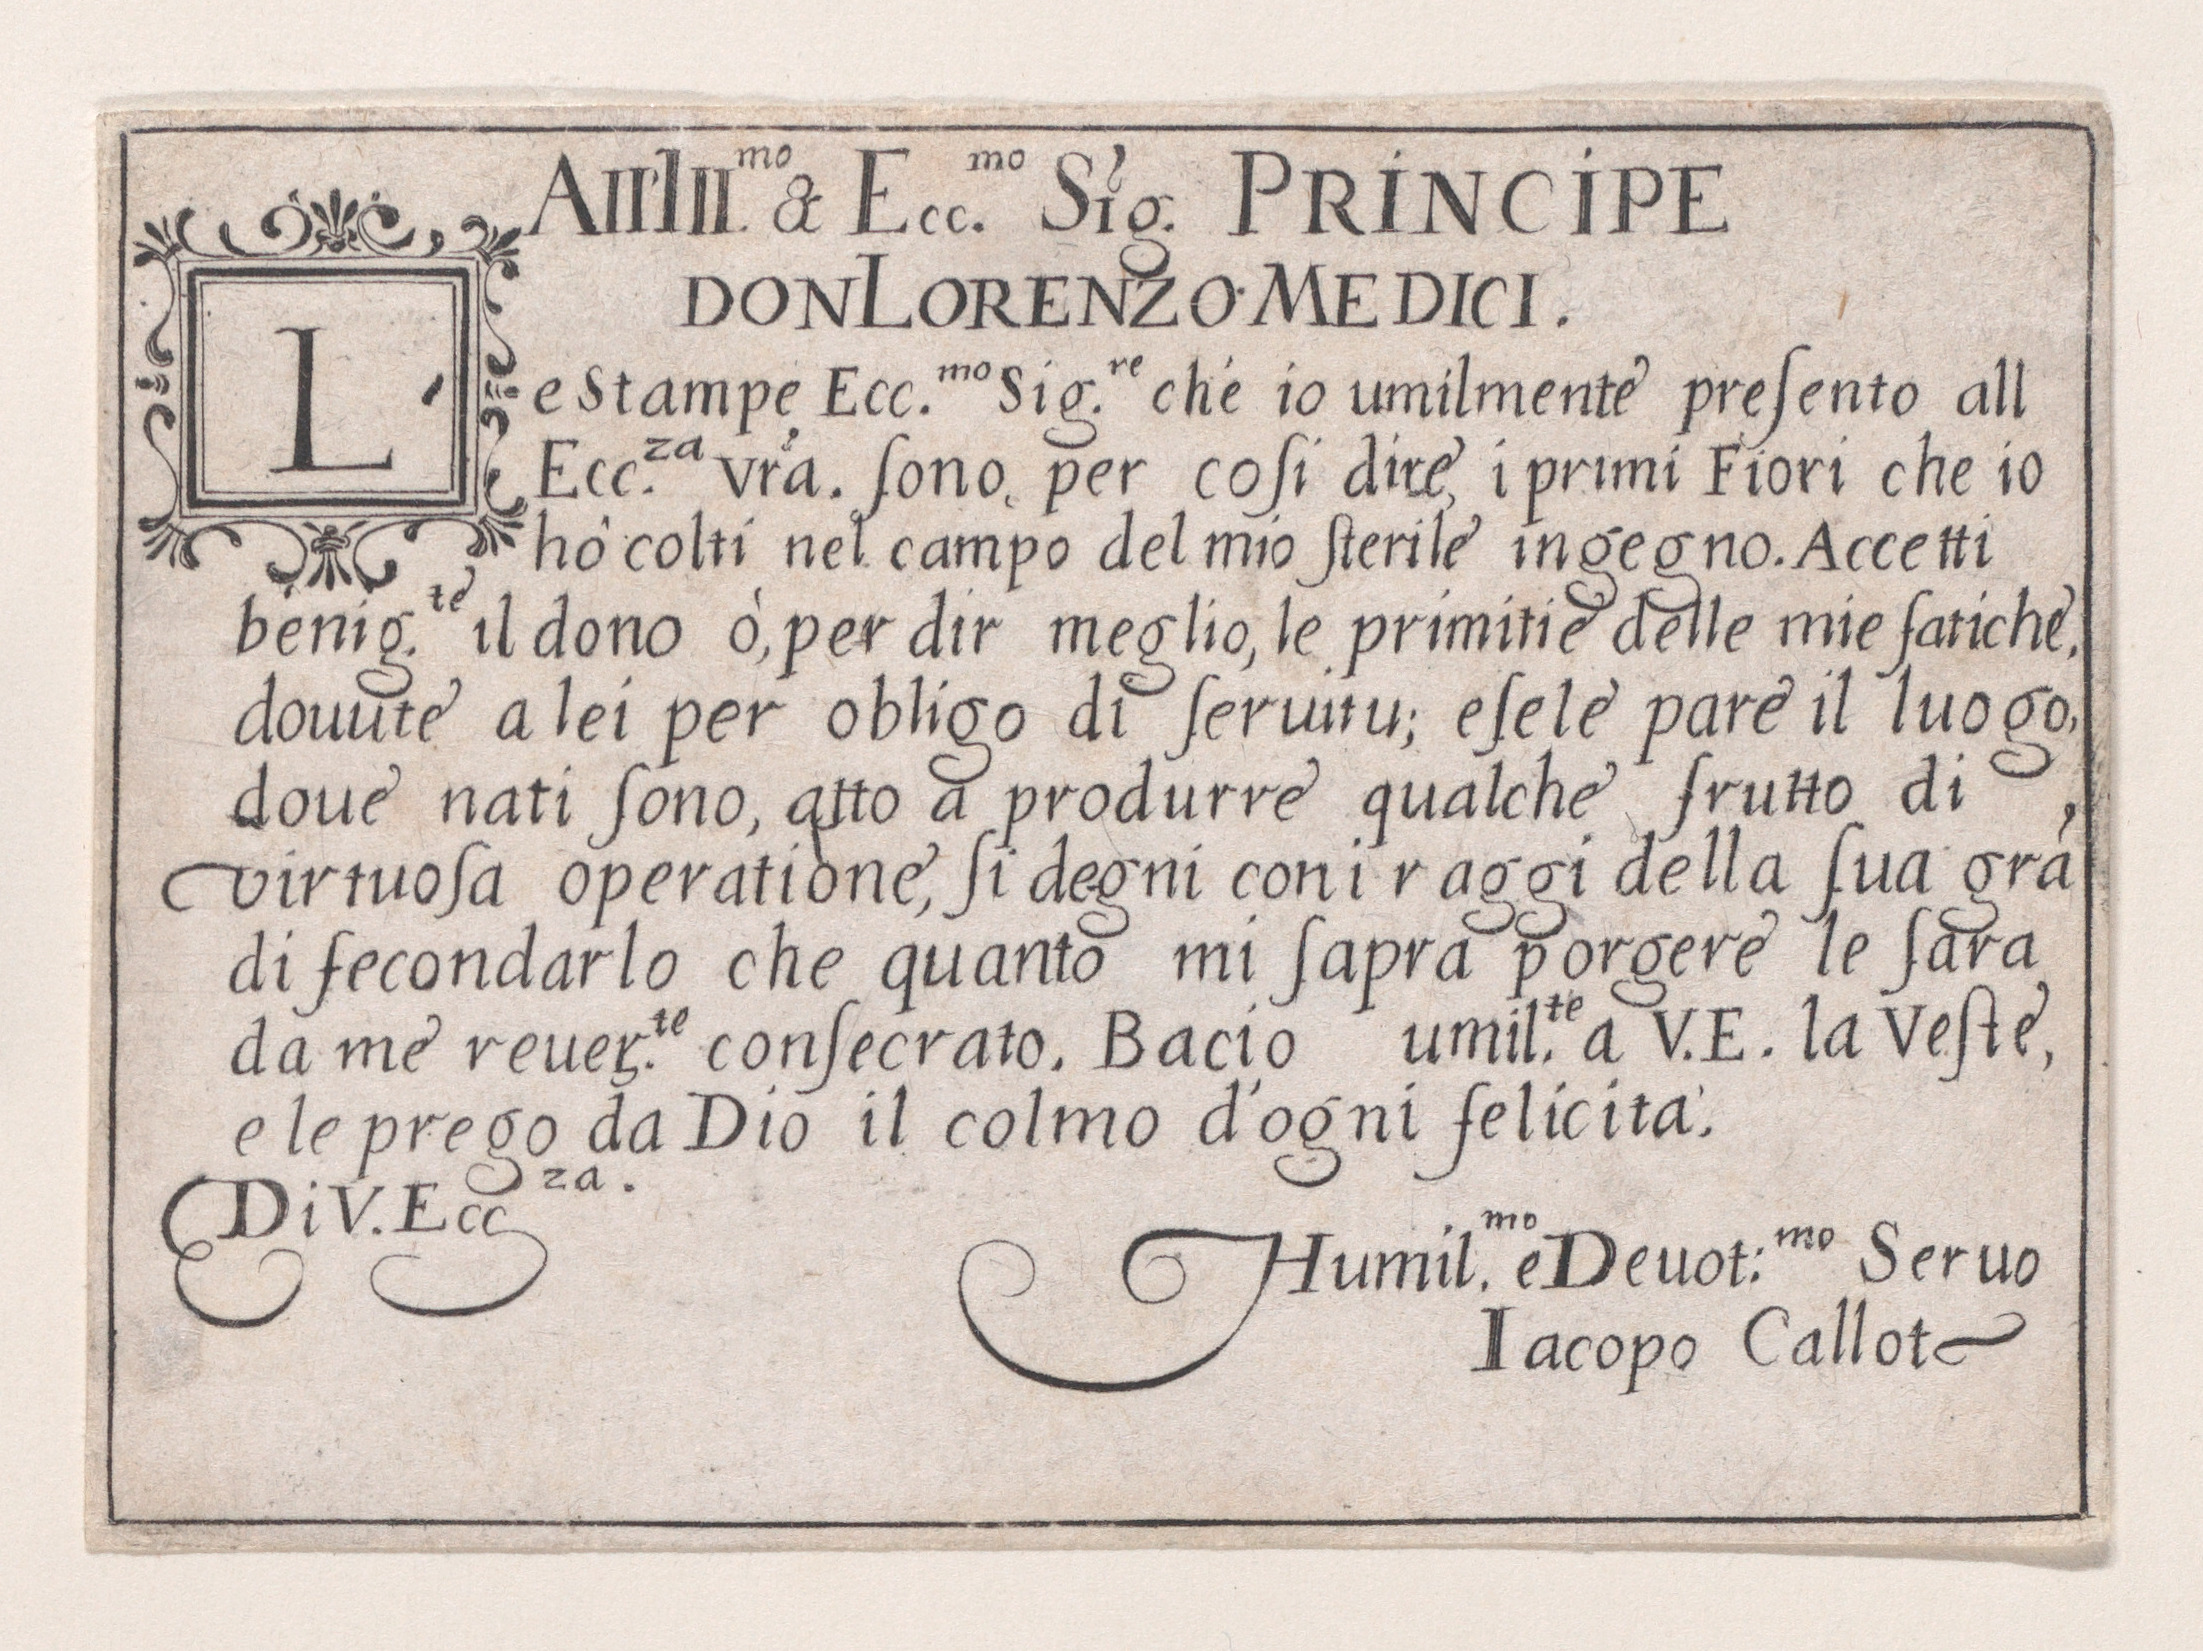 All Ill.mo & Ecc.mo Sig. PRINCIPE
DON LORENZO MEDICI.
Le Stampe, Ecc.mo Sig.re che io umilmente preſento all
Ecc.za vr̃a. ſono, per coſi dire, i primi Fiori che io
hò colti nel campo del mio ſterile ingegno. Accetti
benig.te il dono ò, per dir meglio, le primitie delle mie fatiche,
douute a lei per obligo di ſeruitu; e ſe le pare il luogo,
doue nati ſono, atto a produrre qualche frutto di
virtuoſa operatione, ſi degni con i raggi della ſua gr̃a
di fecondarlo che quanto mi ſapra porgere le ſara
da me reuer.te conſecrato. Bacio umil.te a V.E. la Veſte,
e le prego da Dio il colmo d'ogni felicita'.
Di V. Ecc za.
Humil.mo e Deuot:mo Seruo
Iacopo Callot